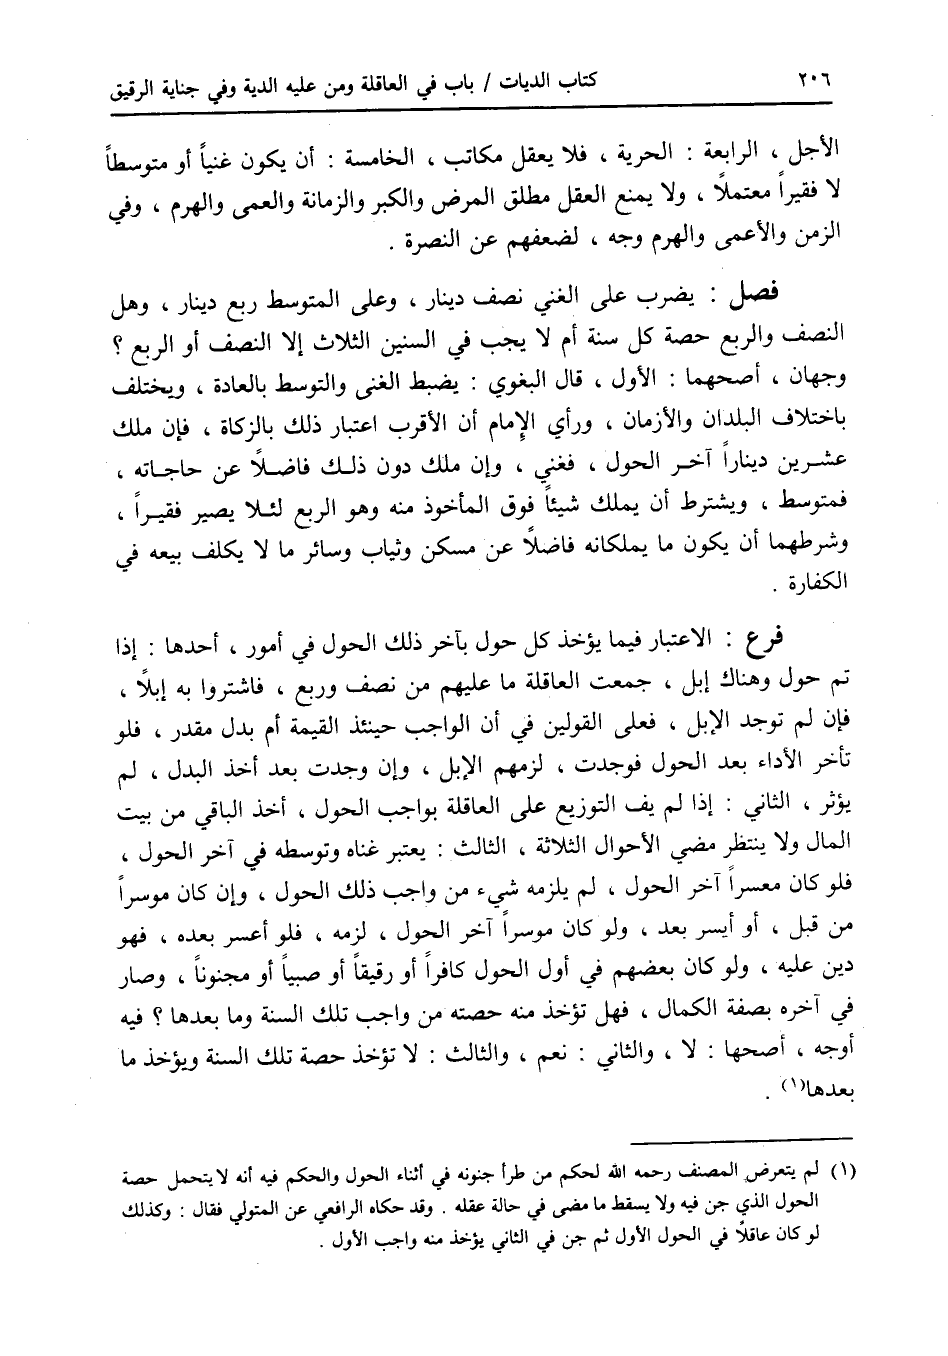 ٢٠٦ كتاب الديات / باب في العاقلة ومن عليه الدية وفي جناية الرقيق
الأجل ، الرابعة : الحرية ، فلا يعقل مكاتب ، الخامسة : أن يكون غنياً أو متوسطاً
لا فقيراً معتملاً ، ولا يمنع العقل مطلق المرض والكبر والزمانة والعمى والهرم ، وفي
الزمن والأعمى والهرم وجه ، لضعفهم عن النصرة .
فصل : يضرب على الغني نصف دينار ، وعلى المتوسط ربع دينار ، وهل
النصف والربع حصة كل سنة أم لا يجب في السنين الثلاث إلا النصف أو الربع ؟
وجهان ، أصحهما : الأول ، قال البغوي : يضبط الغنى والتوسط بالعادة ، ويختلف
باختلاف البلدان والأزمان ، ورأي الإمام أن الأقرب اعتبار ذلك بالزكاة ، فإن ملك
عشرين ديناراً آخر الحول ، فغني ، وإن ملك دون ذلك فاضلاً عن حاجاته ،
فمتوسط ، ويشترط أن يملك شيئاً فوق المأخوذ منه وهو الربع لئلا يصير فقيراً ،
وشرطهما أن يكون ما يملكانه فاضلاً عن مسكن وثياب وسائر ما لا يكلف بيعه في
الكفارة .
فرع : الاعتبار فيما يؤخذ كل حول بآخر ذلك الحول في أمور ، أحدها : إذا
تم حول وهناك إبل ، جمعت العاقلة ما عليهم من نصف وربع ، فاشتروا به إبلاً ،
فإن لم توجد الإبل ، فعلى القولين في أن الواجب حينئذ القيمة أم بدل مقدر ، فلو
تأخر الأداء بعد الحول فوجدت ، لزمهم الإبل ، وإن وجدت بعد أخذ البدل ، لم
يؤثر ، الثاني : إذا لم يف التوزيع على العاقلة بواجب الحول ، أخذ الباقي من بيت
المال ولا ينتظر مضي الأحوال الثلاثة ، الثالث : يعتبر غناه وتوسطه في آخر الحول ،
فلو كان معسراً آخر الحول ، لم يلزمه شيء من واجب ذلك الحول ، وإن كان موسراً
من قبل ، أو أيسر بعد ، ولو كان موسراً آخر الحول ، لزمه ، فلو أعسر بعده ، فهو
دين عليه ، ولو كان بعضهم في أول الحول كافراً أو رقيقاً أو صبياً أو مجنوناً ، وصار
في آخره بصفة الكمال ، فهل تؤخذ منه حصته من واجب تلك السنة وما بعدها ؟ فيه
أوجه ، أصحها : لا ، والثاني : نعم ، والثالث : لا تؤخذ حصة تلك السنة ويؤخذ ما
بعدها(١) .
(١) لم يتعرض المصنف رحمه الله لحكم من طرأ جنونه في أثناء الحول والحكم فيه أنه لا يتحمل حصة
الحول الذي جن فيه ولا يسقط ما مضى في حالة عقله . وقد حكاه الرافعي عن المتولي فقال : وكذلك
لو كان عاقلاً في الحول الأول ثم جن في الثاني يؤخذ منه واجب الأول .